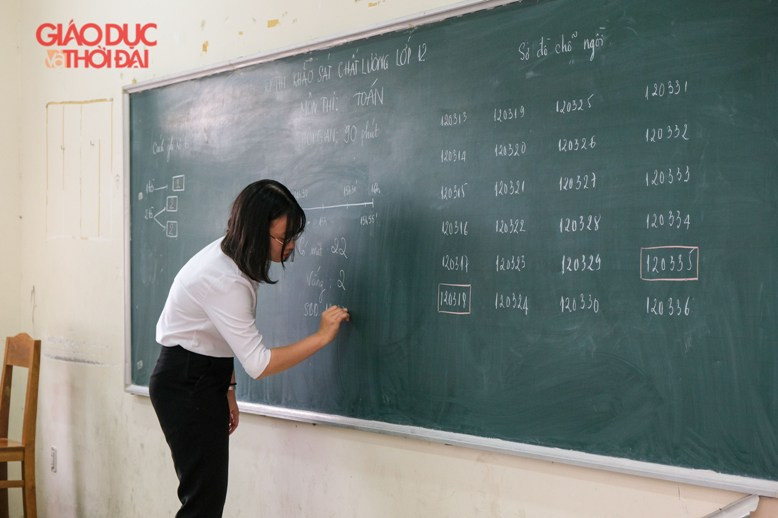 GIÁO DỤC
và THỜI ĐẠI
THI KHẢO SÁT CHẤT LƯỢNG LỚP 12
MÔN THI: TOÁN
90 phút
mặt 22
Vắng: 2
SBD:
Sơ đồ chỗ ngồi
120313 120319 120325 120331
120314 120320 120326 120332
120315 120321 120327 120333
120316 120322 120328 120334
120317 120323 120329 120335
120318 120324 120330 120336